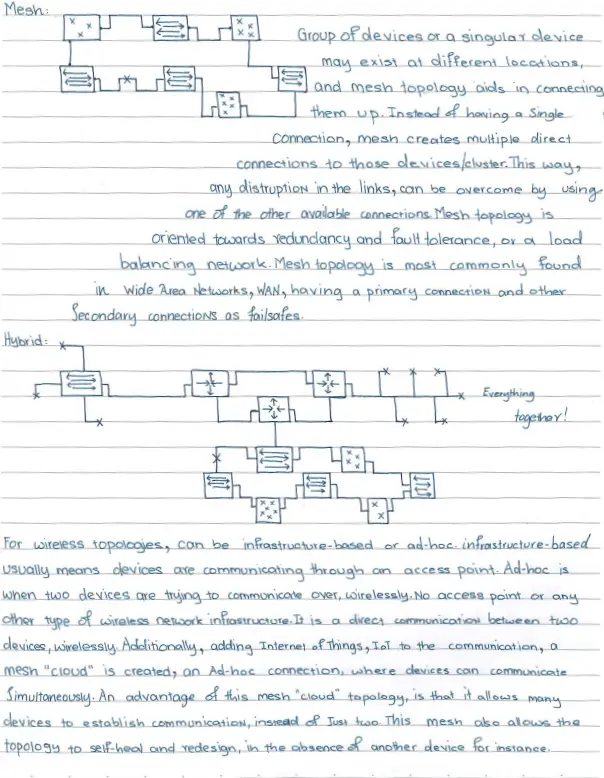 Mesh:
Group of devices or a singular device
may exist at different locations,
and mesh topology aids in connecting
them up. Instead of having a single
connection, mesh creates multiple direct
connections to those devices/cluster. This way,
any distruption in the links, can be overcome by using
one of the other available connections. Mesh topology is
oriented towards redundancy and fault tolerance, or a load
balancing network. Mesh topology is most commonly found
in Wide Area Networks, WAN, having a primary connection and other
Secondary connections as failsafes.
Hybrid:
Everything
together!
For wireless topologies, can be infrastructure-based or ad-hoc. infrastructure-based
usually means devices are communicating through an access point. Ad-hoc is
when two devices are trying to communicate over, wirelessly. No access point or any
other type of wireless network infrastructure. It is a direct communication between two
devices, wirelessly. Additionally, adding Internet of Things, IoT to the communication, a
mesh "cloud" is created, an Ad-hoc connection, where devices can communicate
Simultaneously. An advantage of this mesh "cloud" topology, is that it allows many
devices to establish communication, instead of Just two. This mesh also allows the
topology to self-heal and redesign, in the absence of another device for instance.